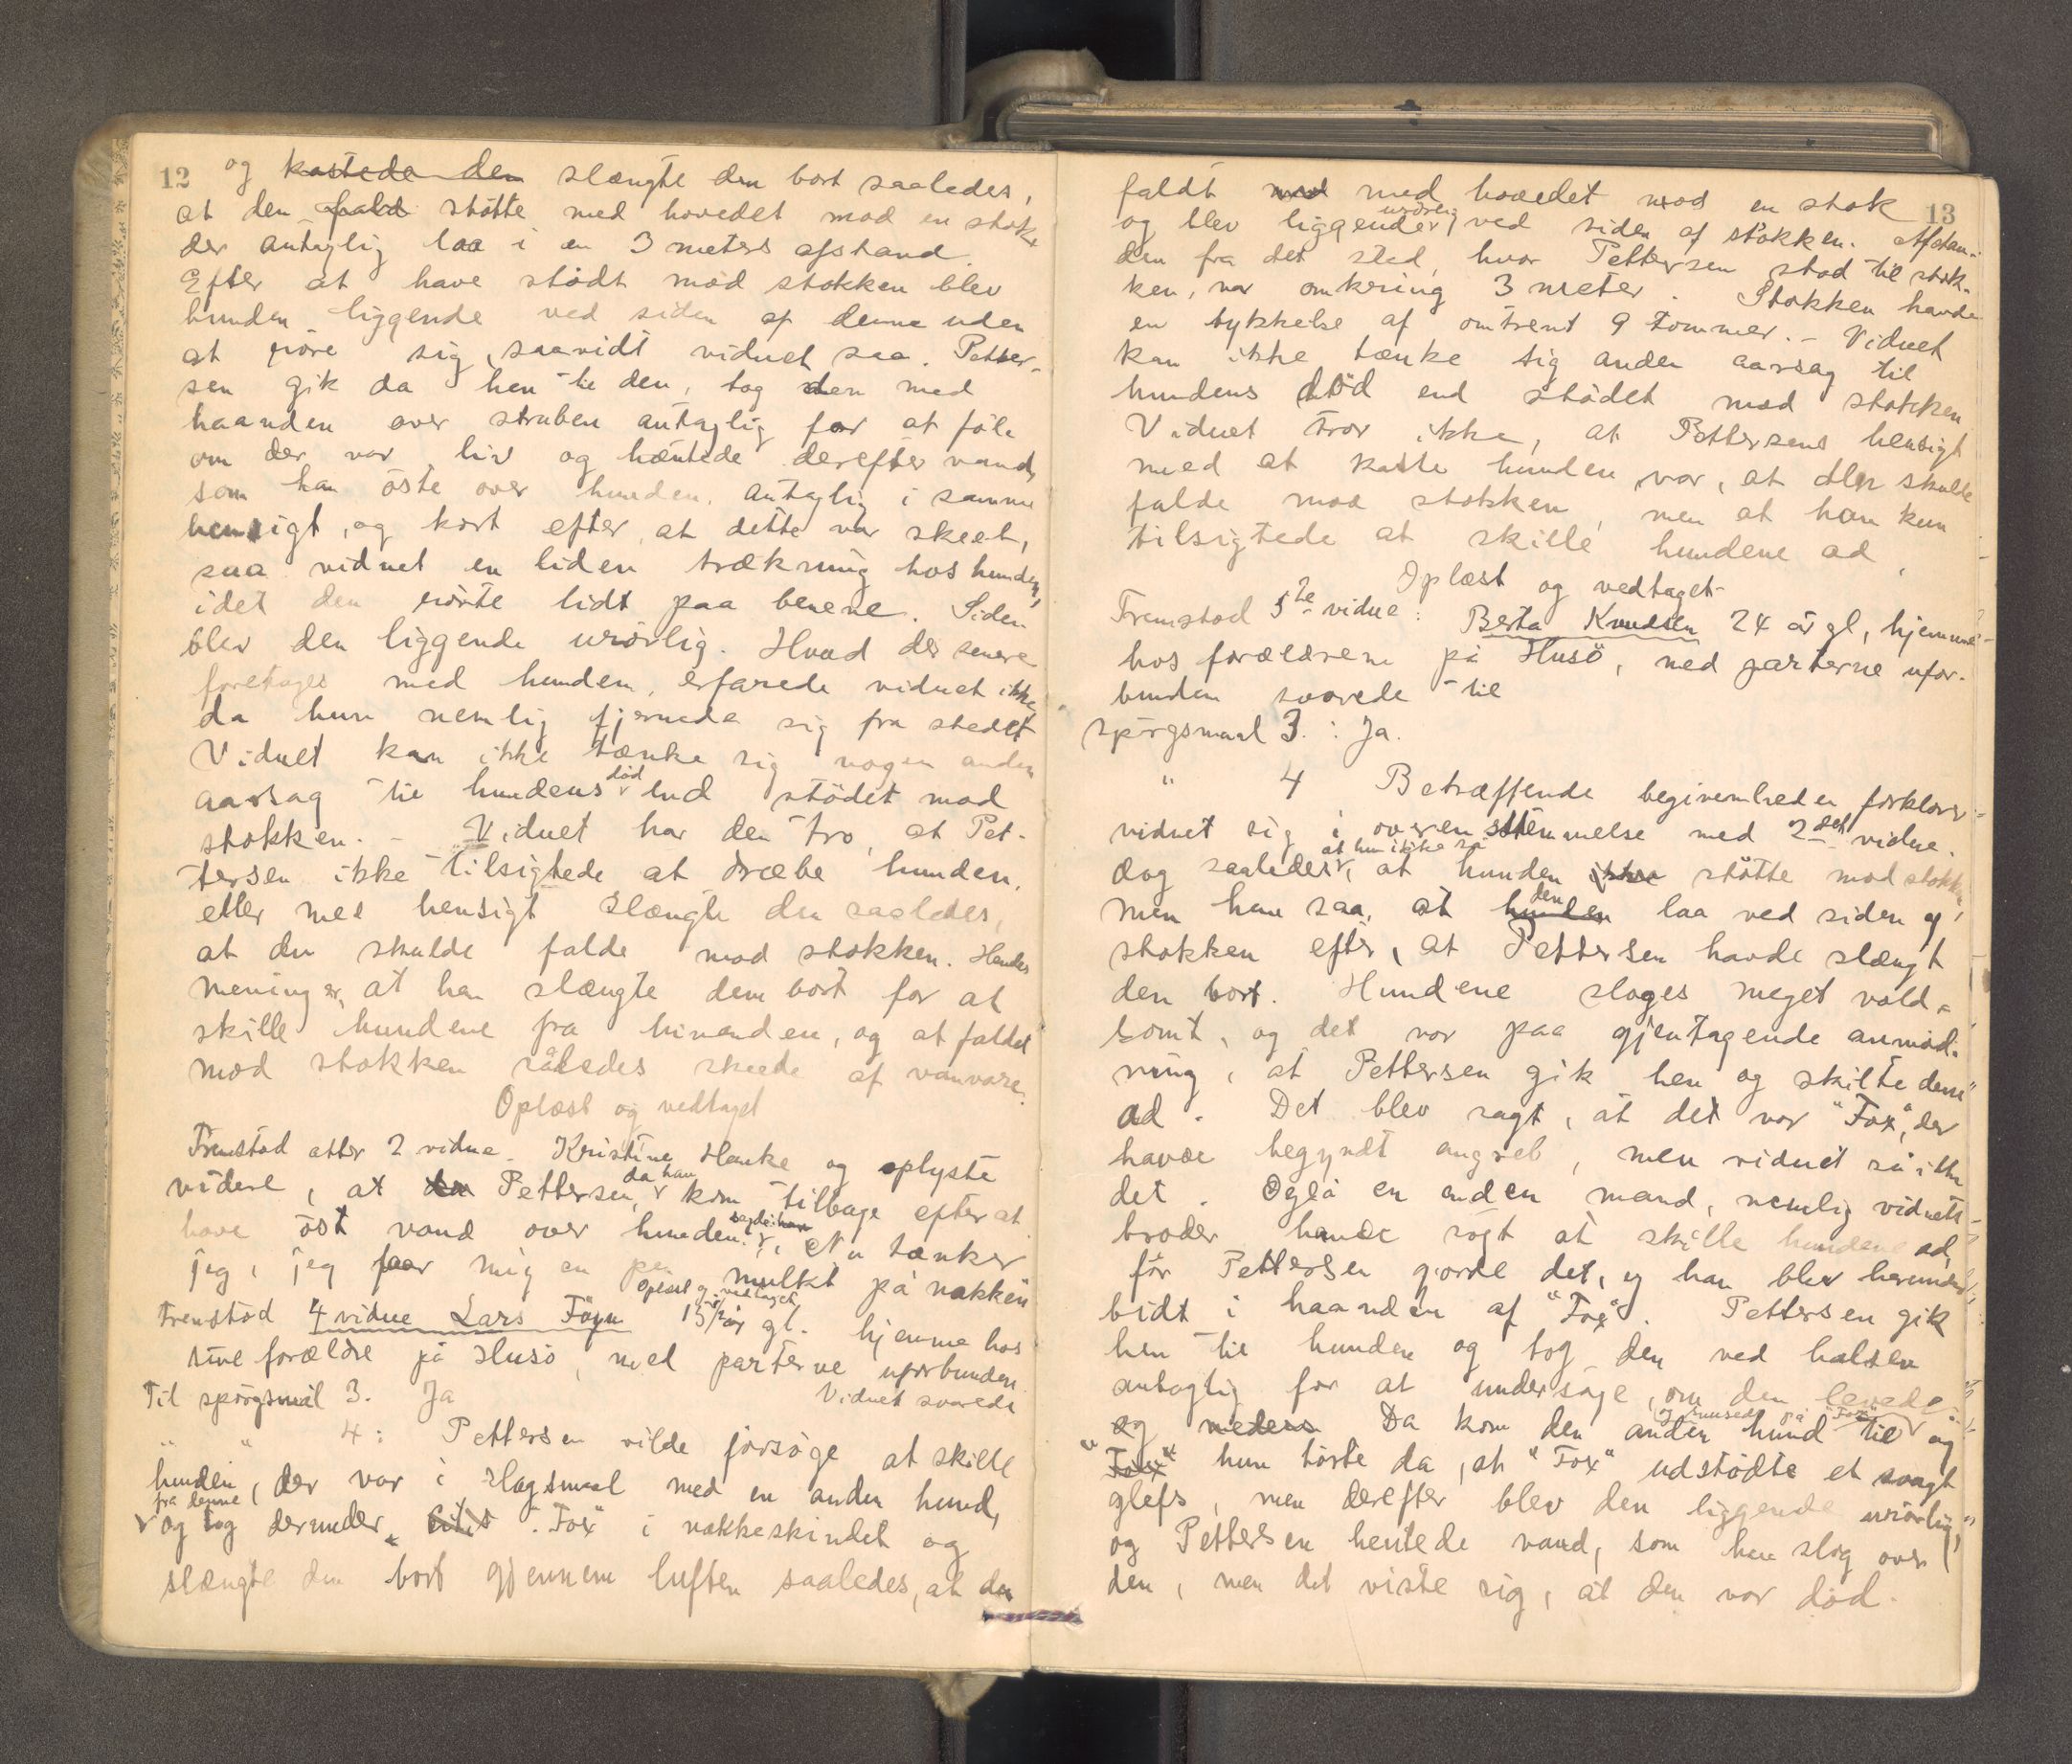 12 og kastede den slængte den bort saaledes,
at den fald støtte med hovedet mod en stok
der antaglig laa i en 3 meters afstand.
Efter at have stødt mod stokken blev
hunden liggende ved siden af denne uden
at røre sig, saavidt vidnet saa. Petter-
sen gik da hen til den, tog den med
haanden over struben antaglig for at føle
om der var liv og hæntede derefter vand,
som han öste over hunden, antaglig i samme
hensigt, og kort efter, at dette var skeet,
saa vidnet en liden trækning hos hunden,
idet den rörte lidt paa benene. Siden
blev den liggende urörlig. Hvad der senere
foretages med hunden, erfarede vidnet ikke
da hun nemlig fjernede sig fra stedet
Vidnet kan ikke tænke sig nogen anden
aarsag til hundens død end stödet mod
stokken. - Vidnet har den tro, at Pet-
tersen ikke tilsigtede at dræbe hunden,
eller med hensigt slængte den saaledes,
at den skulde falde mod stokken. Hendes
mening er, at han slængte dem bort for at
skille hundene fra hinanden, og at faldet
mod stokken således skeede af vanvare.
Oplæst og vedtaget
Fremstod atter 2 vidne. Kristine Hauke og oplyste
videre, at den Pettersen, da han kom tilbage efter at
have öst vand over hunden, sagde: han Nu tænker
jeg, jeg faar mig en pen mulkt på nakken
Oplæst og vedtaget
Fremstod 4 vidne Lars Föyn 15 1/2 år gl. hjemme hos
sine forældre på Husö, med parterne uforbunden.
Vidnet svarede
Til spörgsmål 3. Ja
" " 4: Pettersen vilde forsöge at skille
hunden, der var i slagsmaal med en anden hund,
fra denne
og tog derunder "Fox" i nakkeskindet og
slængte den bort gjennem luften saaledes, at den
faldt mod med hovedet mod en stok 13
og blev liggende urörlig ved siden af stokken. Afstan-
den fra det sted, hvor Pettersen stod til stok-
ken, var omkring 3 meter. Stokken havde
en tykkelse af omtrent 9 tommer. - Vidnet
kan ikke tænke sig anden aarsag til
hundens död end stödet mod stokken
Vidnet tror ikke, at Pettersens hensigt
med at kaste hunden var, at den skulde
falde mod stokken, men at han kun
tilsigtede at skille hundene ad,
Oplæst og vedtaget
Fremstod 5te vidne: Berta Knudsen 24 år gl, hjemme
hos forældrene på Husö, med parterne ufor-
bunden svarede til
spörgsmaal 3. : Ja.
" 4 Betræffende begivenheden forklarer
vidnet sig i overensstemmelse med 2det vidne.
dog saaledes, at hun ikke så at hunden ikke stötte mod stokken,
men hun saa, at hunden den laa ved siden af
stokken efter, at Pettersen havde slængt
den bort. Hundene sloges meget vold-
somt, og det var paa gjentagende anmod-
ning, at Pettersen gik hen og skilte dem
ad. Det blev sagt, at det var "Fox", der
havde begyndt angreb, men vidnet så ikke
det. Også en anden mand, nemlig vidnets
broder havde sögt at skille hundene ad,
för Pettersen gjorde det, og han blev herunder
bidt i haanden af "Fox". Pettersen gik
hen til hunden og tog den ved halsen
antaglig for at undersöge, om den levede
og medens Da kom den anden hund til og
og snusede på "Fox"
"Fox" hun hörte da, at "Fox" udstödte et svagt
glefs, men derefter blev den liggende urörlig,
og Pettersen hentede vand, som han slog over
den, men det viste sig, at den var död.